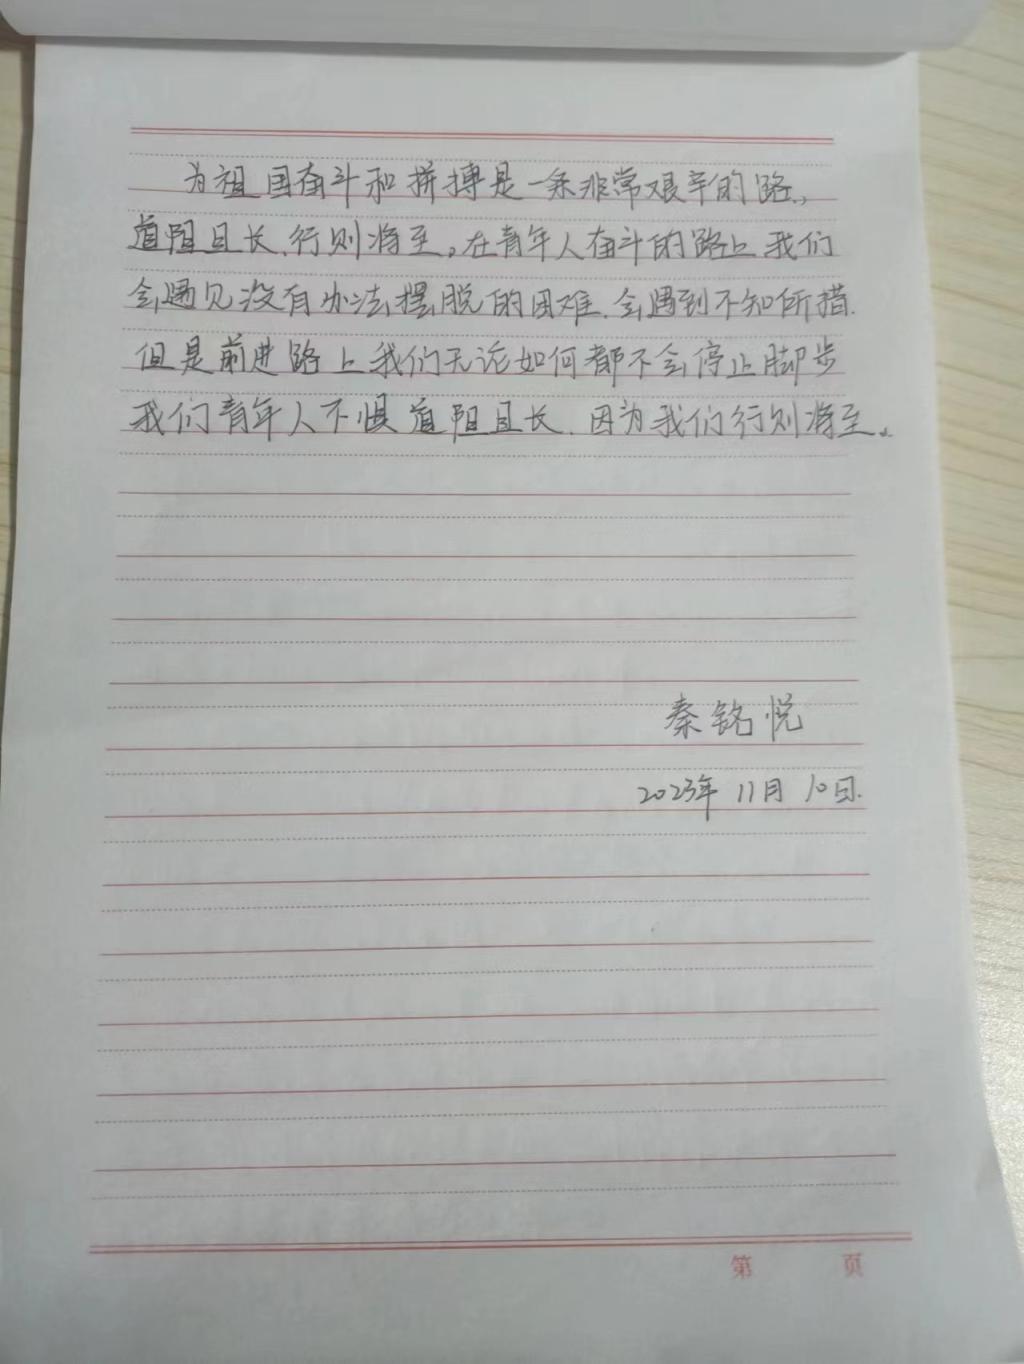 为祖国奋斗和拼搏是一条非常艰辛的路,
道阻且长,行则将至。在青年人奋斗的路上我们
会遇见没有办法摆脱的困难,会遇到不知所措.
但是前进路上我们无论如何都不会停止脚步
我们青年人不惧道阻且长,因为我们行则将至。
秦铭悦
2023年 11月 10日.
第 页